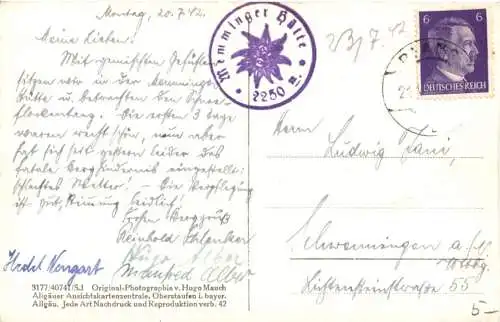 Montag, 20.7.42.
Meine Lieben!
Mit gemischten Gefühlen
sitzen wir in der Memminger
Hütte u. betrachten den Schnee-
flockentanz. Die ersten 3 Tage
waren recht schön, nun aber
hat sich seit gestern leider das
fatale Berghindernis eingestellt:
schlechtes Wetter. – Die Verpflegung
ist gut, Stimmung leidlich!
Frohen Berggruß
Reinhold
Hugo Alber
Manfred Alber
Hedel Nengart
3177/40741/SJ Original-Photographie v. Hugo Mauch
Allgäuer Ansichtskartenzentrale, Oberstaufen i. bayer.
Allgäu. Jede Art Nachdruck und Reproduktion verb. 42
Memminger Hütte
2250 m.
23/7. 42
6 6
DEUTSCHES REICH
Herrn
Ludwig
Schwenningen a./N
Württbg.
Lichtensteinstrasse 55
5-